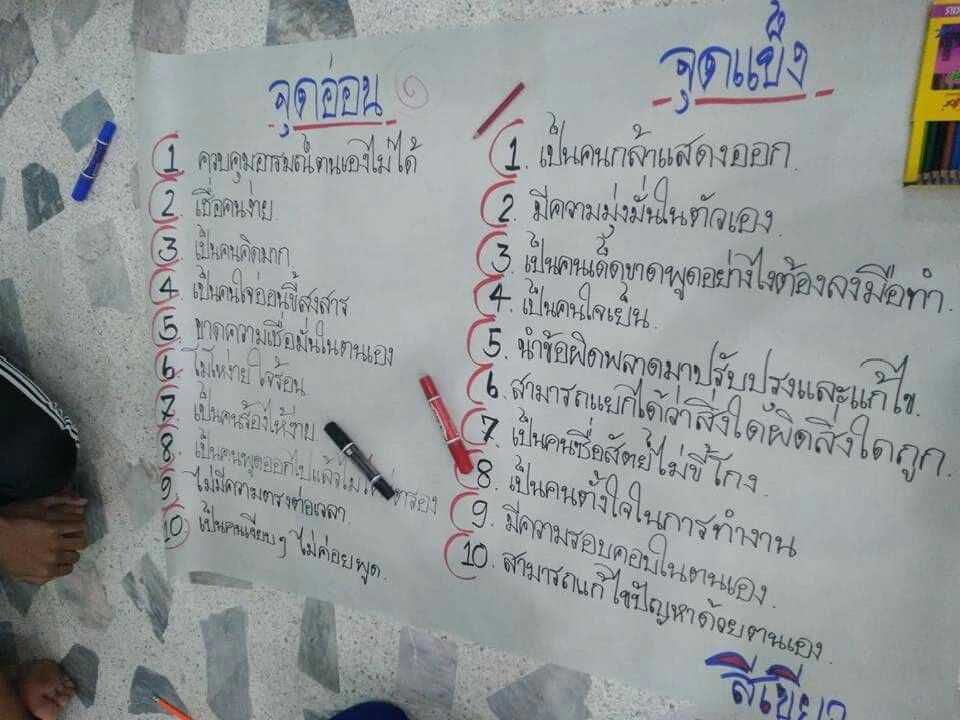 จุดอ่อน ๑
1 ควบคุมอารมณ์ตนเองไม่ได้
2 เชื่อคนง่าย
3 เป็นคนคิดมาก
4 เป็นคนใจอ่อนขี้สงสาร
5 ขาดความเชื่อมั่นในตนเอง
6 ใจร้อน
7 เป็นคนร้องไห้ง่าย
8 เป็นคนพูดออกไปแล้วไม่ ตรอง
9 ไม่มีความตรงต่อเวลา
10 เป็นคนเงียบๆ ไม่ค่อยพูด
จุดแข็ง
1. เป็นคนกล้าแสดงออก
2. มีความมุ่งมั่นในตัวเอง
3. เป็นคนเด็ดขาดพูดอย่างไงต้องลงมือทำ
4. เป็นคนใจเย็น
5. นำข้อผิดพลาดมาปรับปรุงและแก้ไข
6. สามารถแยกได้ว่าสิ่งใดผิดสิ่งใดถูก
7. เป็นคนซื่อสัตย์ไม่ขี้โกง
8. เป็นคนตั้งใจในการทำงาน
9. มีความรอบคอบในตนเอง
10. สามารถแก้ไขปัญหาด้วยตนเอง
สีเขียว